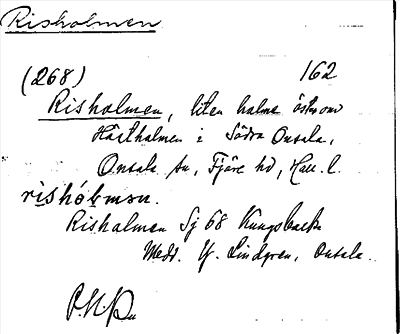 Risholmen
(268) 162
Risholmen, liten holme öster om
Hästholmen i Södra Onsala,
Onsala sn, Fjäre hd, Hall. l.
rishòlmən.
Risholmen Sj 68 Kungsbacka
Medd. Lindgren, Onsala.